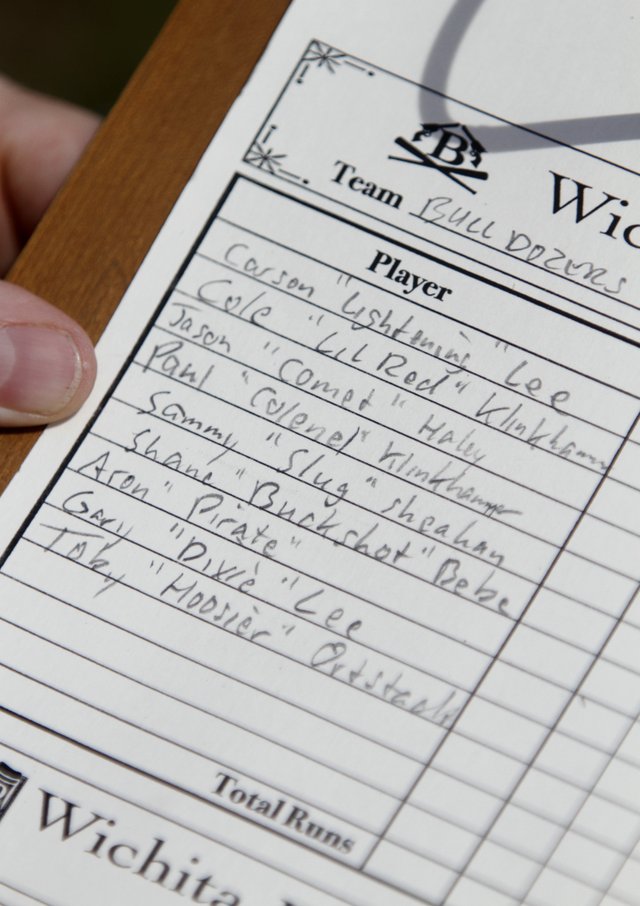 B
Wic
Team BULLDOZERS
Player
Carson "Lightening" Lee
Cole "Lil Red" Klinkhammer
Jason "Comet" Haley
Paul "Colenel" Klinkhammer
Sammy "Slug" Sheahan
Shane "Buckshot" Bebe
Aron "Pirate"
Gary "Dixie" Lee
Toby "Hoosier"
Total Runs
Wichita